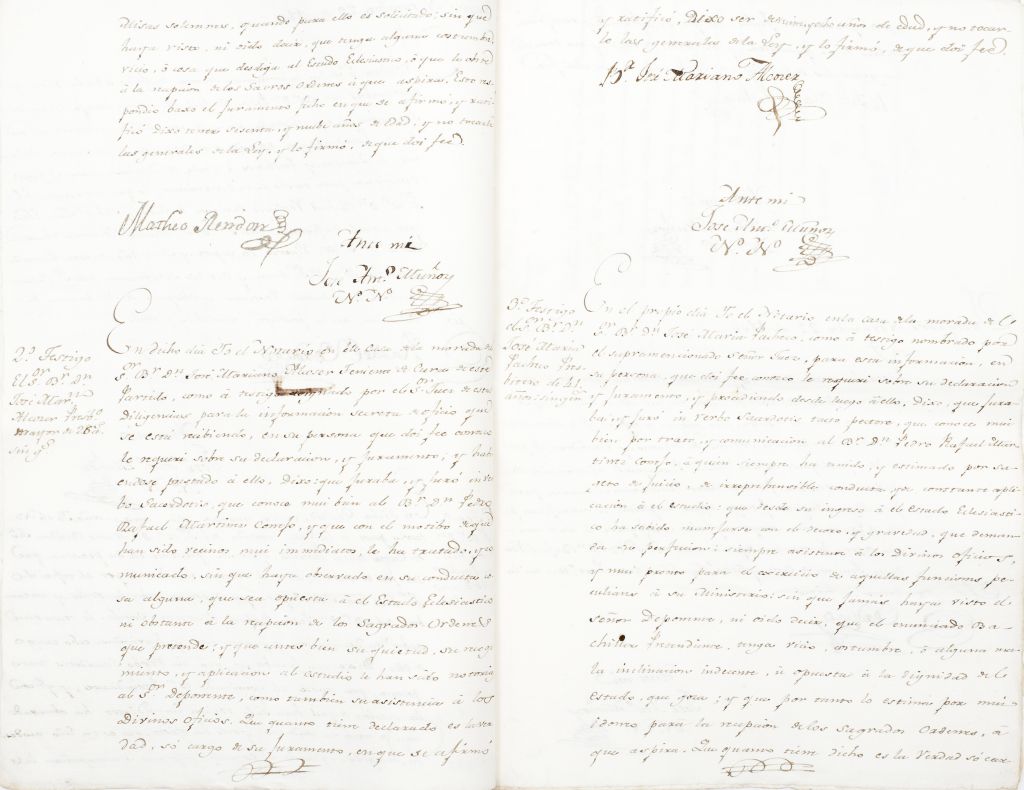 Misas solemnes, quando para ello es solicitado: sin que
haya visto, ni oido decir, que tenga alguna costumbre,
vicio, ó cosa que desdiga al Estado Eclesiastico, ó que le obste
á la recepcion de los Sacros Ordenes á que aspira. Esto res-
pondio baxo el Juramento fho en que se afirmó, y rati-
ficó dixo tener sesenta, y nuebe años de Edad; y no tocarle
las generales de la Ley, y lo firmó, de que doi fee.
Matheo Rendon
Ante mi
José Antº Muñoz
Nº Nº
2º Testigo
El Sr Br Dn
José Marno
Moser Presbº
mayor de 26 a.
sin gs
En dicho dia Yo el Notario en la Casa de la morada del
Sr Br Dn José Mariano Moser Teniente de Cura de este
Partido, como á testigo nombrado por el Sr Juez de estas
diligencias para la informacion secreta de oficio que
se está recibiendo, en su persona que doi fee conosco
le requeri sobre su declaracion, y Juramento, y havi-
endose prestado á ello, dixo: que juraba, y juró in ver-
bo Sacerdotis, que conoce mui bien al Br Dn Pedro
Rafael Martinez Conejo, y que con el motibo de que
han sido vecinos mui inmediatos, le ha tratado, y co-
municado, sin que haya observado en su conducta co-
sa alguna, que sea opuesta á el Estado Eclesiastico
ni obstante á la recepcion de los Sagrados Ordenes
que pretende; y que antes bien su quietud, su recogi-
miento, y aplicacion al estudio le han sido notorias
al Sr Deponente, como tambien su asistencia á los
Divinos Oficios. Que quanto tiene declarado es la ver-
dad, só cargo de su Juramento, en que se afirmó
y ratificó, Dixo ser de años de edad, y no tocar-
le las generales de la Ley, y lo firmó, de que doi fee.
Br José Mariano Moser
Ante mi
José Antº Muñoz
Nº Nº
3º Testigo
el Sr Br Dn
José Maria
Pacheco Pres-
bitero de 41
años sin gen
En el propio dia Yo el Notario en la casa de la morada del
Sr Br Dn José Maria Pacheco, como á testigo nombrado por
el supramencionado Señor Juez, para esta informacion, en
su persona, que doi fee conosco le requeri sobre su declaracion
y Juramento, y procediendo desde luego á ello, Dixo, que jura-
ba, y juró in verbo Sacerdotis tacto pectore, que conoce mui
bien, por trato, y comunicacion al Br Dn Pedro Rafael Mar-
tinez Conejo, á quien siempre ha tenido, y estimado por su-
jeto de juicio, de irreprehensible conducta, y de constante apli-
cacion á el estudio: que desde su ingreso á el Estado Eclesiasti-
co ha sabido manejarse con el decoro, y gravedad, que deman-
da su perfeccion: siempre asistente á los divinos oficios,
y mui pronto para el exercicio de aquellas funciones pe-
culiares á su Ministerio; sin que jamás haya visto el
señor deponente, ni oido decir, que el enunciado Ba-
chiller Pretendiente, tenga vicio, costumbre, ó alguna ma-
la inclinacion indecente, ú opuesta á la dignidad del
estado, que goza; y que por tanto lo estima por mui
idoneo para la recepcion de los Sagrados Ordenes, á
que aspira. Que quanto tiene dicho es la verdad só car-